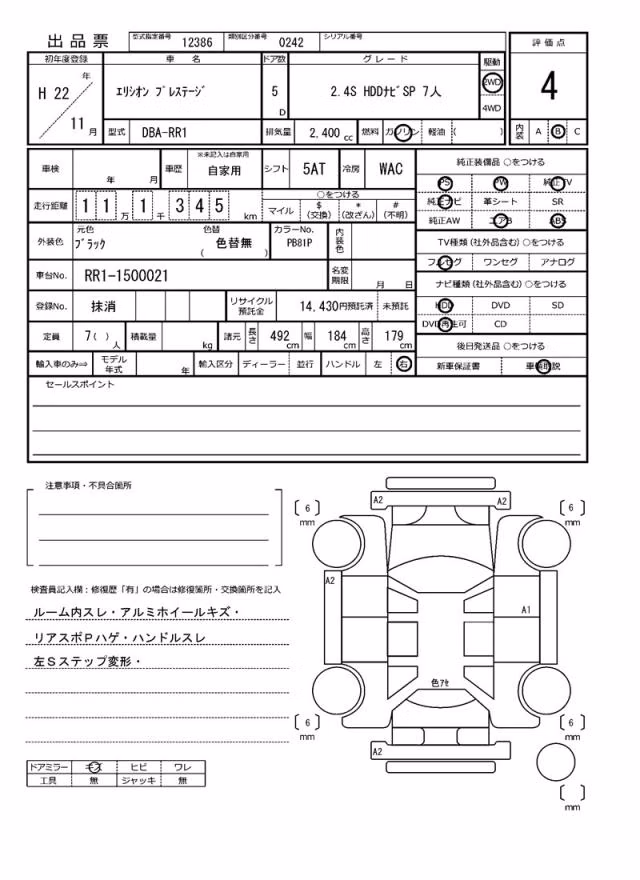 出品票 型式指定番号 12386 類別区分番号 0242 シリアル番号
評価点
4
初年度登録 車名 ドア数 グレード 駆動
H 22 年 11 月
エリシオン プレステージ 5 D 2.4S HDDナビSP 7人 2WD 4WD
型式 DBA-RR1 排気量 2,400 cc 燃料 ガソリン 軽油 ( )
内装 A B C
車検 年 月 車歴 ※未記入は自家用 自家用 シフト 5AT 冷房 WAC
走行距離 1 1 万 1 千 3 4 5 km
○をつける
マイル $(交換) *(改ざん) #(不明)
外装色 元色 ブラック 色替 ( 色替無 ) カラーNo. PB81P 内装色
車台No. RR1-1500021 名変期限 月 日
登録No. 抹消 リサイクル預託金 14,430円預託済 未預託
定員 7( )人 積載量 kg 諸元 長さ 492 cm 幅 184 cm 高さ 179 cm
輸入車のみ⇒ モデル年式 年 輸入区分 ディーラー 並行 ハンドル 左 右
純正装備品 ○をつける
PS PW 純正TV
純正ナビ 革シート SR
純正AW エアB ABS
TV種類(社外品含む) ○をつける
フルセグ ワンセグ アナログ
ナビ種類(社外品含む) ○をつける
HDD DVD SD
DVD再生可 CD
後日発送品 ○をつける
新車保証書 車輌取説
セールスポイント
注意事項・不具合箇所
検査員記入欄：修復歴「有」の場合は修復箇所・交換箇所を記入
ルーム内スレ・アルミホイールキズ・
リアスポPハゲ・ハンドルスレ
左Sステップ変形・
ドアミラー キズ ヒビ ワレ
工具 無 ジャッキ 無
A2 A2
6 mm 6 mm
A2 A1
色アセ
6 mm 6 mm
A2
mm